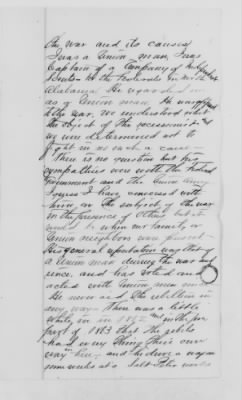 the war and its causes
I was a Union man, I was
Captain of a Company of
to the Federals in North
Alabama. He regarded me
as a Union man. He
the war, we understood what
the object of the secessionists was
we were determined not to
fight in no such a cause
There is no question but his
sympathies were with the Federal
Government and the Union
I have conversed with
him, on the subject of the war
in the presence of others but it
would be when our family, or
Union neighbors was present
His general reputation was that of
a Union man during the war and
since, and has voted and
acted with Union men
He never aid the rebellion in
any way. There was a little
while, in in 1862 in the
part of 1863 that the rebels
had every thing their own
way here, and he drove a wagon
some weeks at a Salt Petre works